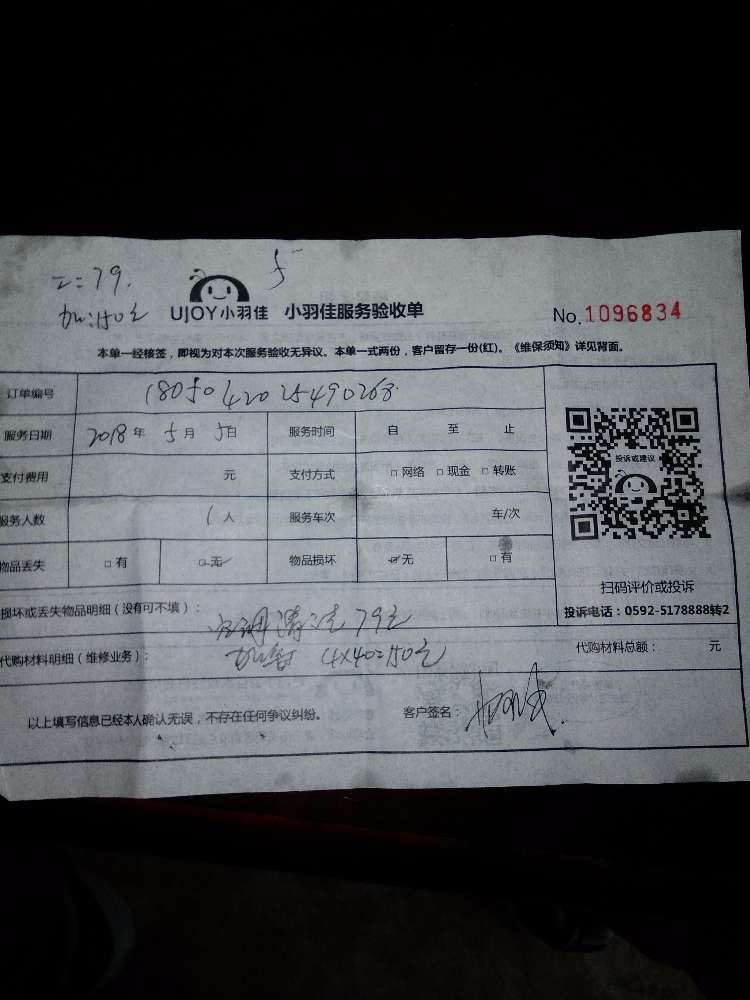 工=79.
加:150元
5
UJOY小羽佳 小羽佳服务验收单
No.1096834
本单一经核签，即视为对本次服务验收无异议。本单一式两份，客户留存一份(红)。《维保须知》详见背面。
订单编号 1805042025490268
服务日期 2018年 5月 5日 服务时间 自 至 止
支付费用 元 支付方式 □网络 □现金 □转账
服务人数 1人 服务车次 车/次
物品丢失 □有 □无 物品损坏 □无 □有
投诉或建议
扫码评价或投诉
投诉电话：0592-5178888转2
损坏或丢失物品明细（没有可不填）：
清洗 79元
代购材料明细（维修业务）： 4×40=150元
代购材料总额： 元
以上填写信息已经本人确认无误，不存在任何争议纠纷。
客户签名：